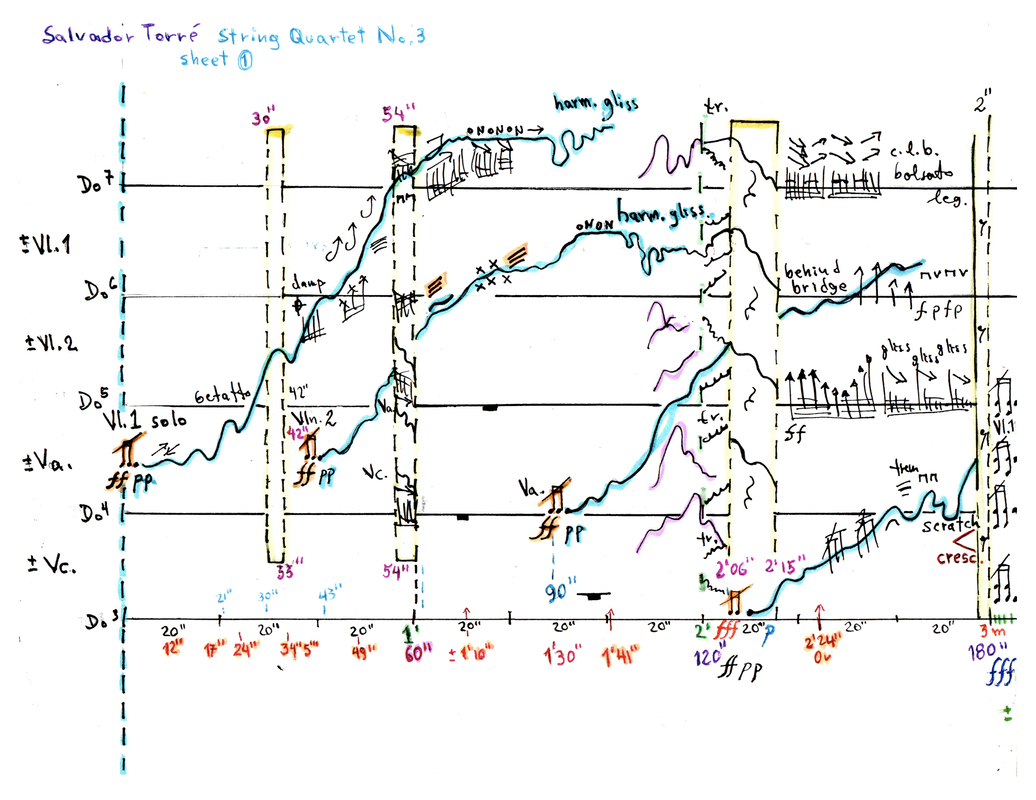 Salvador Torré String Quartet No.3
sheet 1
30" 54" harm. gliss tr. 2"
oNoNoN →
c.l.b.
balsato
leg.
Do7
±Vl.1
harm. gliss.
oNoN
damp
Do6
behind
bridge
fpfp
±Vl.2
gliss gliss gliss
Getatto
42"
Do5
Vl.1 solo Vln.2 Va.
42"
ff
tr.
Vl.1
±Va.
ff pp ff pp Vc. Va. trem
Do4
ff pp
scratch
tr.
cresc.
±Vc.
33" 54" 90" 2'06" 2'15"
21" 30" 43"
Do3
20" 20" 20" 1' 20" 20" 20" 2' fff p 20" 20" 3m
12" 17" 24" 34"5" 49" 60" ±1'10" 1'30" 1'41" 120" ff pp 2'24" 180"
fff
±